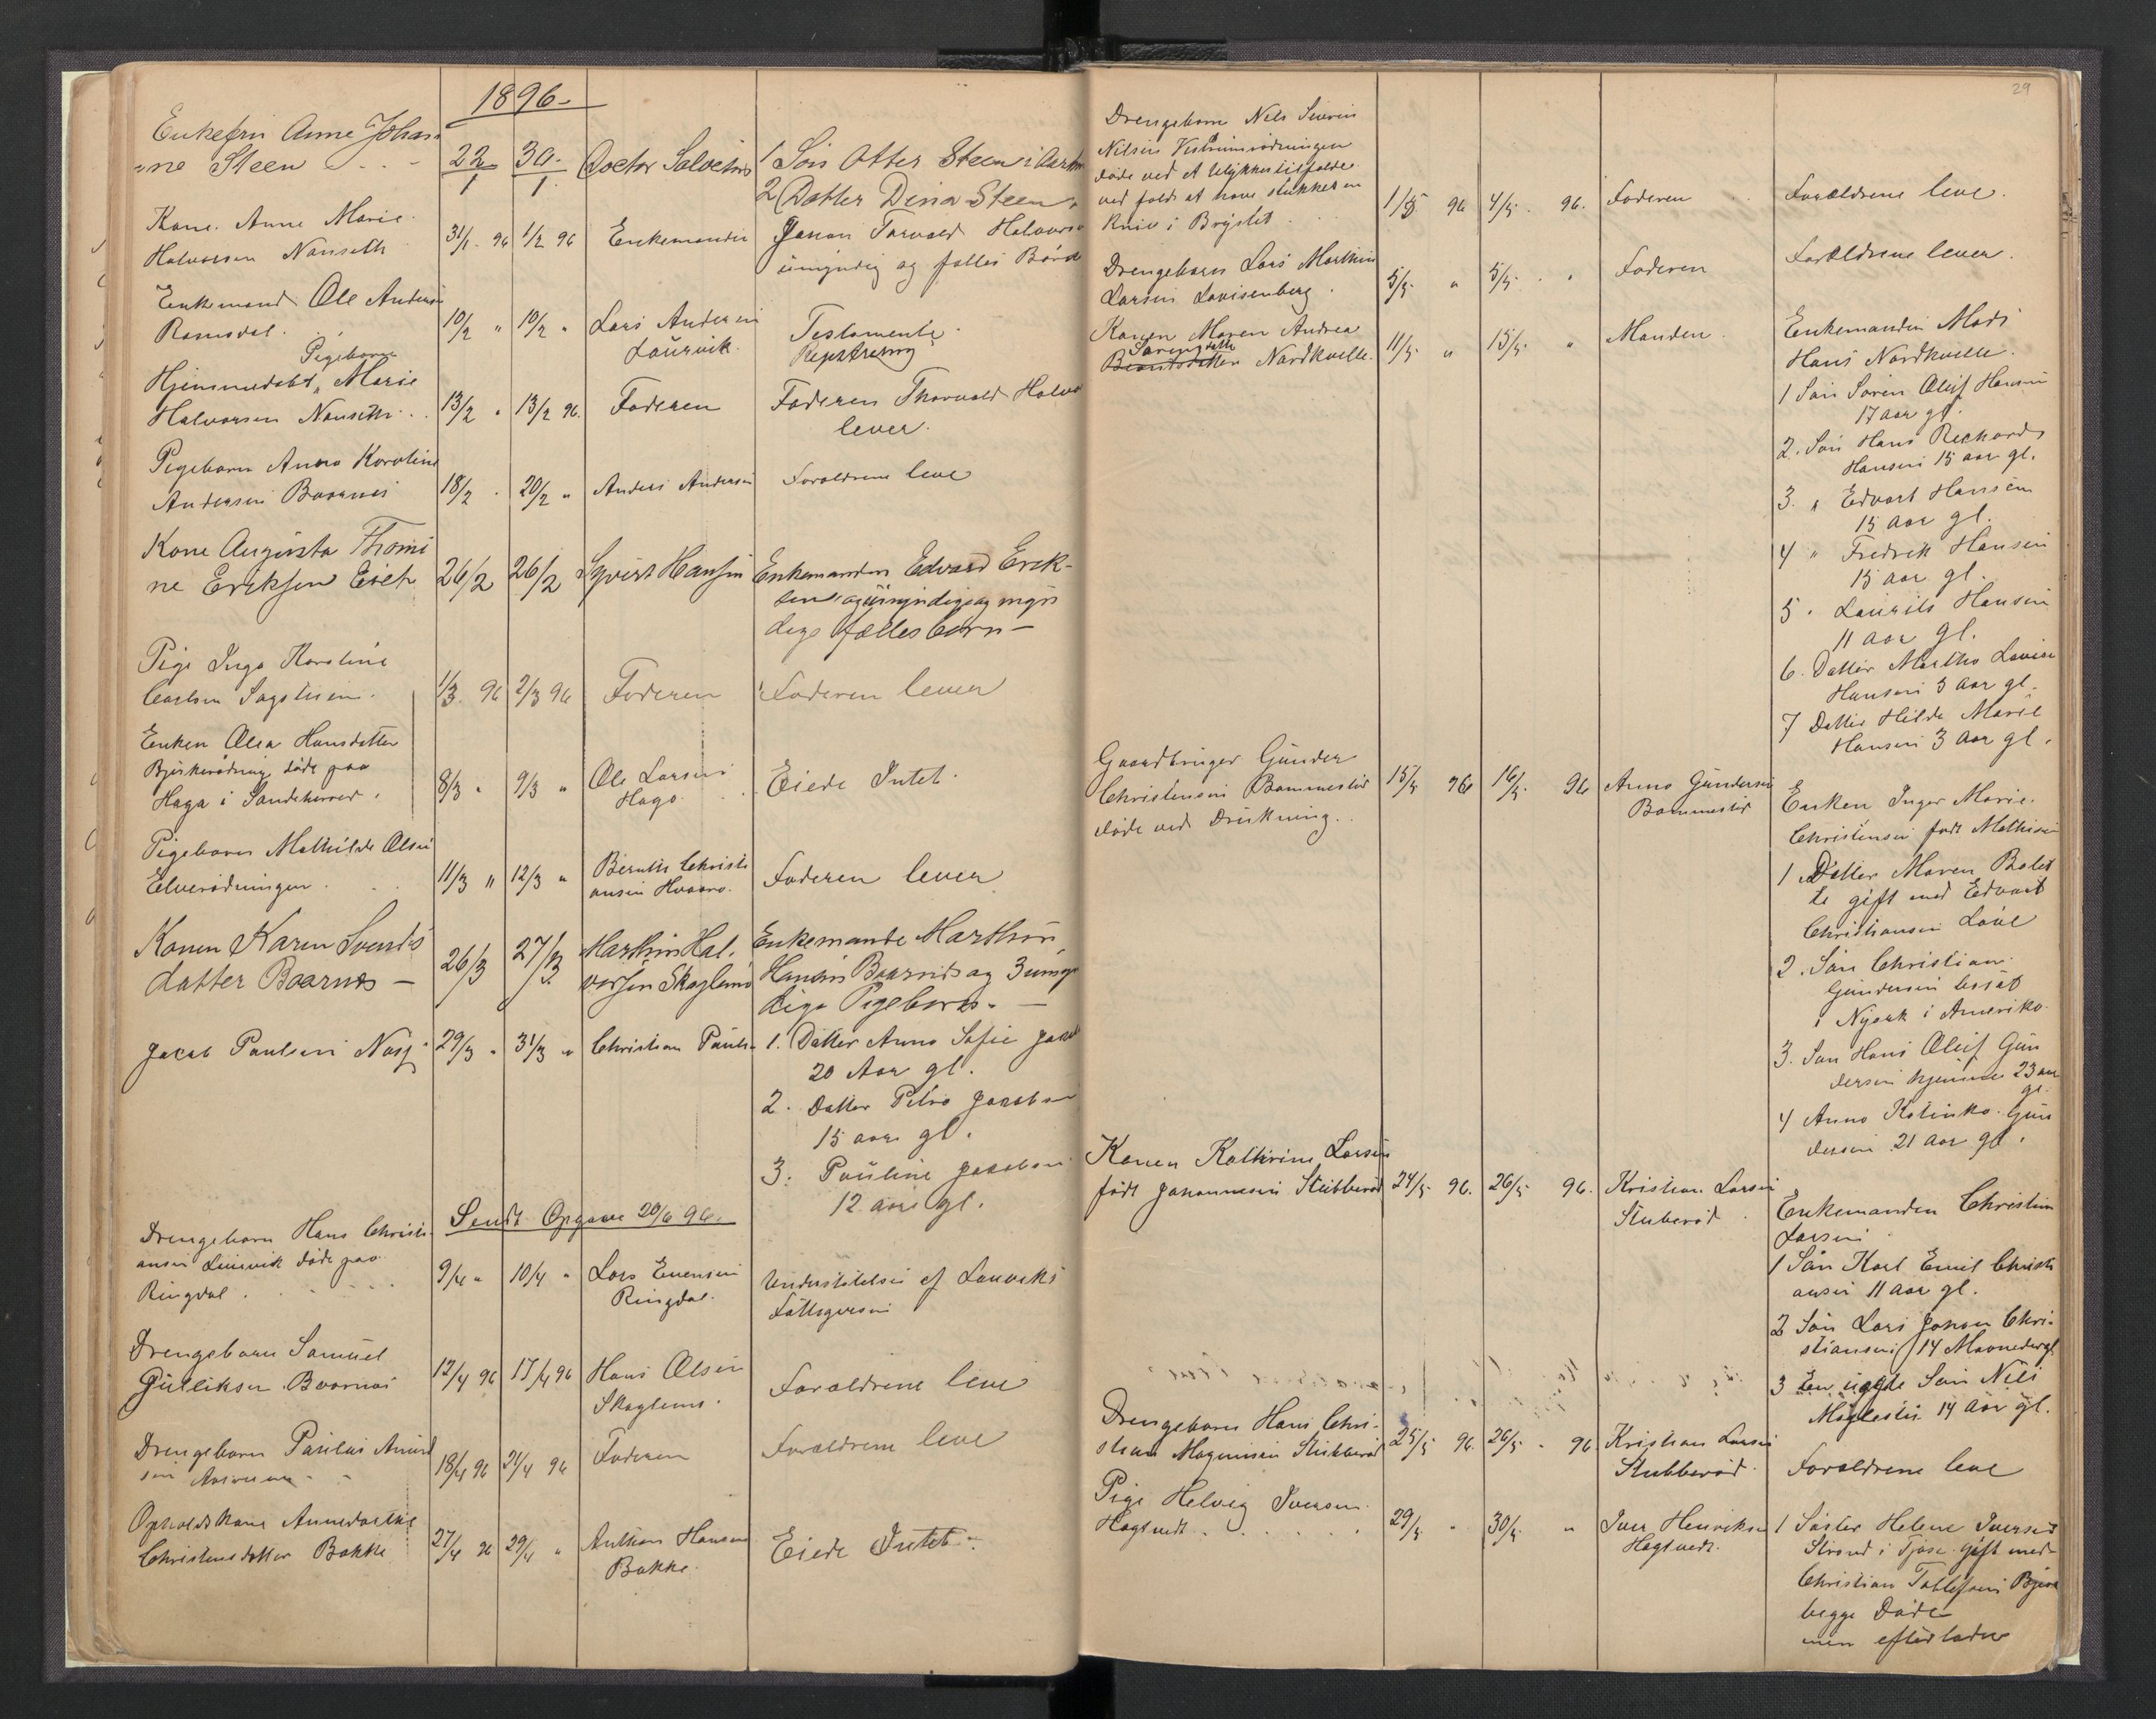 1896
Enkefru Anne Johan
ne Steen
22/1 30/1 Doctor Salvesen
1 Søn Otter Steen i
2 Datter Dina Steen
Kone Anne Marie
Halvorsen Nanseth
31/1 96 1/2 96 Enkemanden
Johan Torvald Halvors
umyndig og fælles Børn
Enkemand Ole Anders
10/2 " 10/2 " Lars Andersen
Laurvik
Testamente
Registrering
Pigebarn
Hjemmedøbt Marie
Halvorsen Nanseth
13/2 " 13/2 96 Faderen
Faderen Thorvald Halvo
lever.
Pigebarn Anna Karoline
Andersen Baarnes
18/2 20/2 " Anders Andersen
Foræeldrene leve
Kone Augusta Thomi
ne Eriksen
26/2 26/2 Syvert Hansen
Enkemanden Edvard Erik-
sen og umyndige og myn
dige fælles børn -
Pige Inga Karoline
Carlsen
1/3 96 2/3 96 Faderen
Faderen lever
Enken Olea Hansdatter
Bjerkerødning døde paa
Haga i Sandeherred.
8/3 " 9/3 " Ole Larsen
Haga
Eiede Intet.
Pigebarn Mathilde Olsen
Elverødningen
11/3 " 12/3 " Bernth Christi
ansen
Faderen lever
Konen Karen Svends
datter Baarnes -
26/3 27/3 Marthin Hal.
vorsen Skaglund
Enkemande Marthin
Hansen Baarnes og 3 umyn
dige Pigebørn. -
Jacob Paulsen
29/3 " 31/3 " Christian Pauls
1. Datter Anna Sofie Jako
20 Aar gl.
2. Datter Petra Jacobsen
15 aar gl.
3. Pauline Jacobsen
12 aar gl.
Sendt Opgave 20/6 96.
Drengebarn Hans Christi
ansen Laurvik døde paa
Ringdal
9/4 " 10/4 " Lars Evensen
Ringdal.
Understøttelse af Laurviks
Fattigvesen
Drengebarn Samuel
Gulliksen Baarnes
12/4 96 17/4 96 Hans Olsen
Forældrene leve
Drengebarn Paulus
18/4 96 21/4 96 Faderen
Forældrene leve
Opholdskone Annedorthe
Christensdatter Bakke
27/4 96 29/4 " Anthon Hansen
Bakke.
Eiede Intet.
29
Drengebarn Nils Severin
Nilsen
døde ved et Ulykkestilfælde
ved fald at have stukket en
Kniv i Brystet
1/5 96 4/5 96. Faderen
Forældrene leve.
Drengebarn Lars Marthin
Larsen Lovisenberg
5/5 " 5/5 " Faderen
Forældrene lever.
Konen Maren Andrea
Sørensdatter
Nordkvelle.
11/5 " 15/5 " Manden
Enkemanden Mads
Hans Nordkvelle.
1 Søn Søren Oluf Hansen
17 aar gl.
2. Søn Hans Richards
Hansen 15 aar gl.
3. " Edvart Hansen
15 aar gl.
4 " Fredrik Hansen
15 aar gl.
5 " Laurits Hansen
11 aar gl.
6. Datter Martha Lovise
Hansen 5 aar gl.
7 Datter Hilda Marie
Hansen 3 aar gl.
Gaardbruger Gunder
Christensen Bommestad
døde ved Drukning.
15/5 96 16/5 96 Anna Gundersen
Bommestad
Enken Inger Marie
Christensen født Mathisen
1 Datter Maren Bolet
te gift med Edvart
Christiansen
2. Søn Christian
Gundersen bosat
i Nyork i Amerika
3. Søn Hans Oluf Gun
dersen hjemme 23 aar
gl.
4 Anna Katinka Gun
dersen 21 aar gl.
Konen Kathrine Larsen
født Johannesen Stubberød
24/5 96. 26/5 96. Kristian Larsen
Stuberød
Enkemanden Christian
Larsen
1 Søn Karl Emil Christi
ansen 11 aar gl.
2 Søn Lars Johan Chri-
stiansen 14 Maaneder gl
3 En uægte Søn Nils
14 aar gl.
Drengebarn Hans Chri-
stian Magnusen Stubberød
25/5 96. 26/5 96. Kristian Larsen
Stubberød
Forældrene leve
Pige Helvig Iversen
Hagtvedt
29/5 " 30/5 " Iver Henriksen
Hagtvedt.
1 Søster Helene Iversen
Strand i Tjøse gift med
Christian
begge Døde
men efterlader